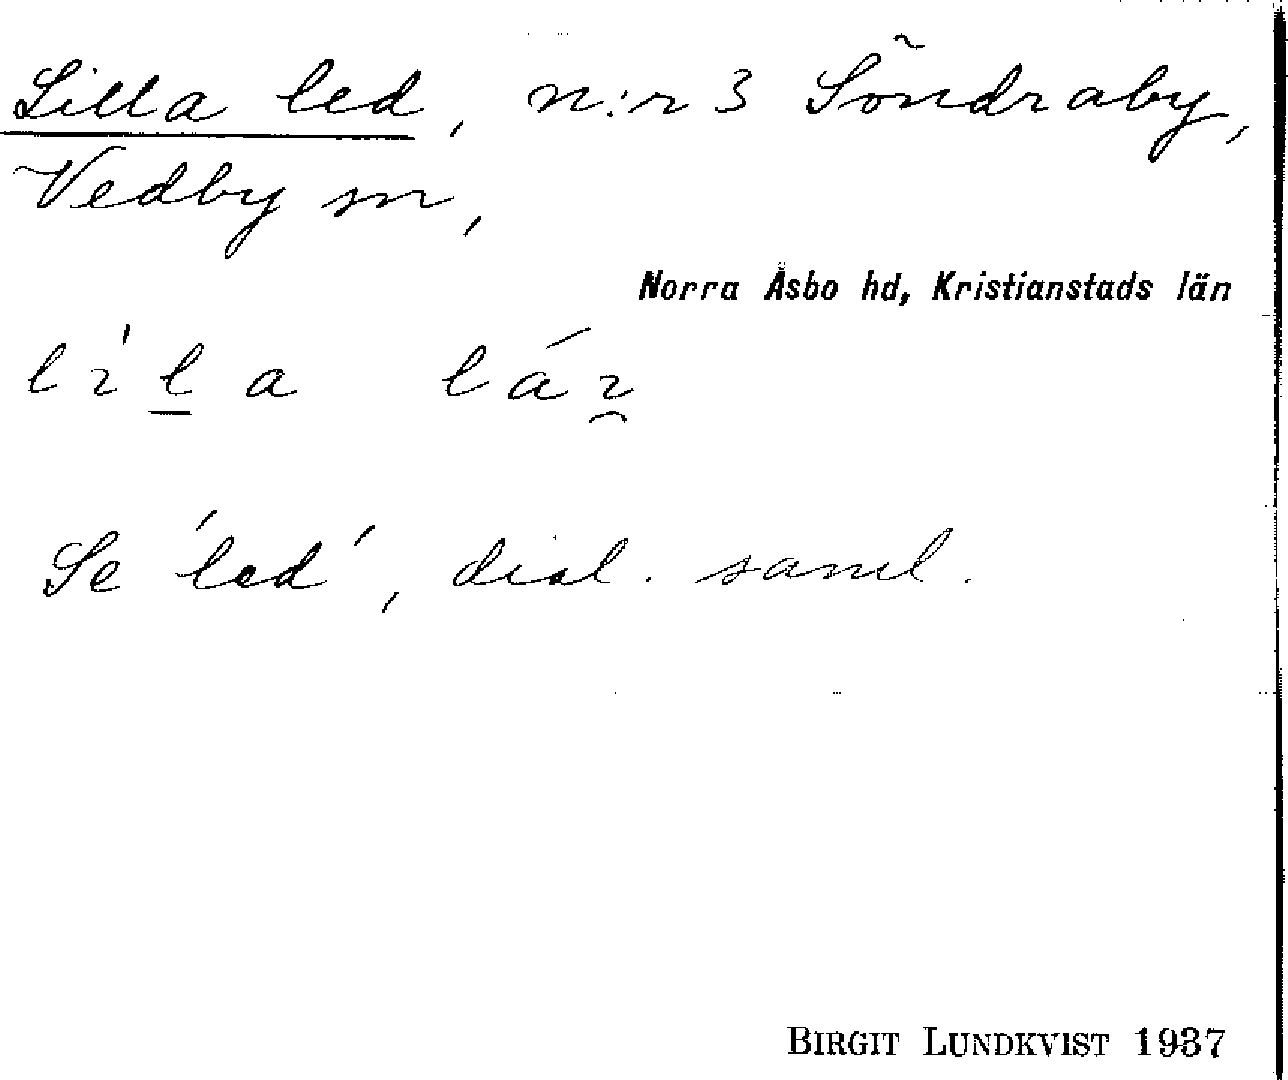 Lilla led, n:r 3 Söndraby,
Vedby sn,
Norra Åsbo hd, Kristianstads län
Se 'led', dial. saml.
BIRGIT LUNDKVIST 1937